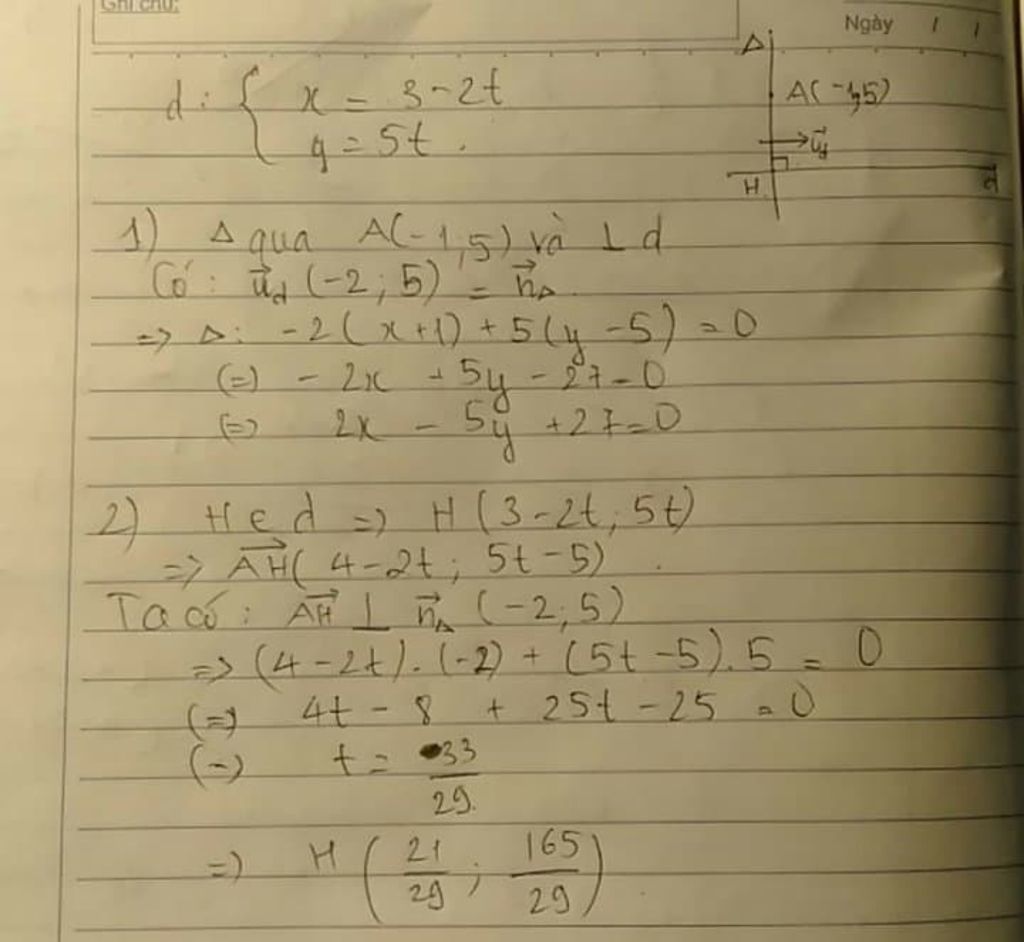 Ghi chú:
Ngày / /
d: { x = 3 - 2t
y = 5t.
Δ
A(-1,5)
u⃗d
H
d
1) Δ qua A(-1,5) và ⊥ d
Có: u⃗d (-2; 5) = n⃗Δ.
=> Δ: -2(x+1) + 5(y - 5) = 0
(=) - 2x + 5y - 27 = 0
(=) 2x - 5y + 27 = 0
2) H ∈ d => H (3 - 2t; 5t)
=> AH⃗ (4 - 2t; 5t - 5).
Ta có: AH⃗ ⊥ n⃗Δ (-2; 5)
=> (4 - 2t).(-2) + (5t - 5).5 = 0
(=) 4t - 8 + 25t - 25 = 0
(=) t = 33/29.
=) H (21/29; 165/29)